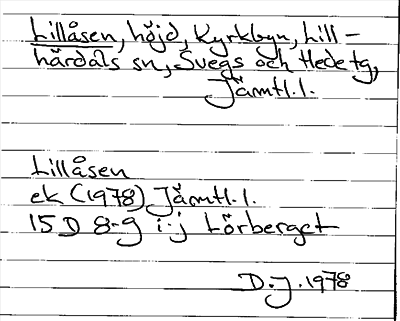 Lillåsen, höjd, Kyrkbyn, Lill-
härdals sn, Svegs och Hede tg,
Jämtl. l.
Lillåsen
ek (1978) Jämtl. l.
15 D 8-9 i-j Lörberget
D. J. 1978